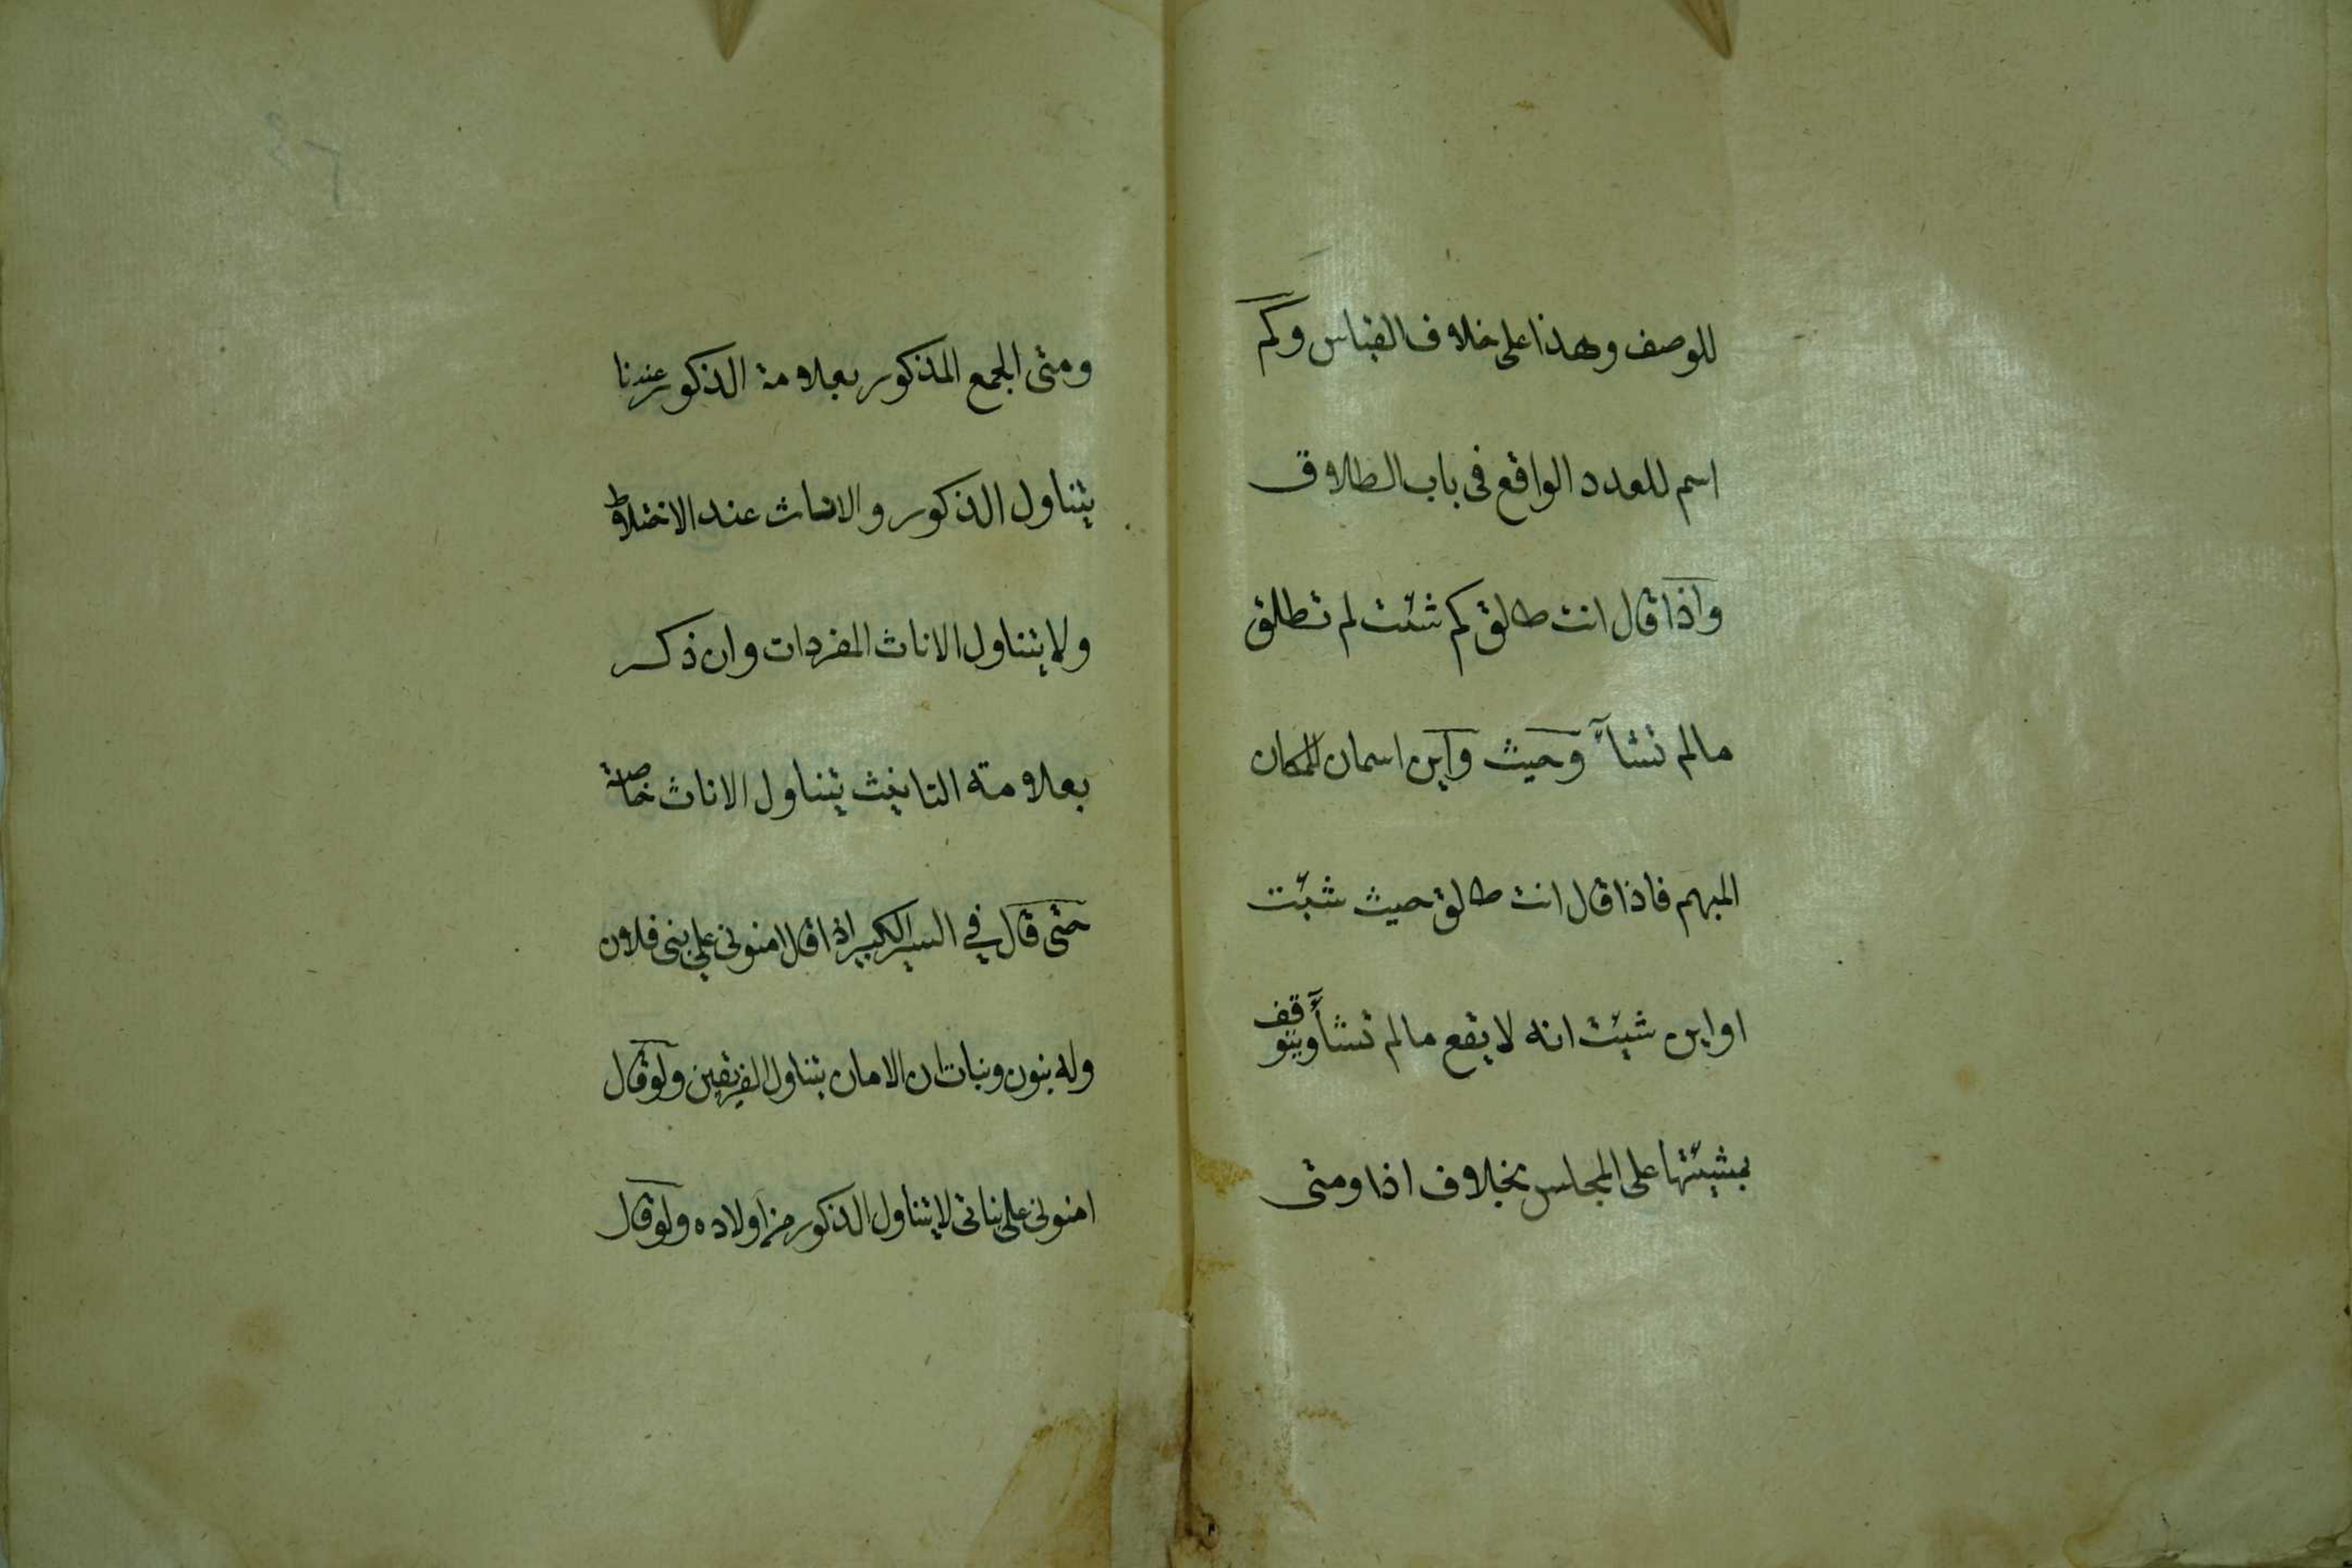 للوصف وهذا على خلاف القياس وكم
اسم للعدد الواقع في باب الطلاق
واذا قال انت طالق كم شئت لم تطلق
مالم تشآء وحيث واين اسمان للمكان
المبهم فاذا قال انت طالق حيث شئت
او اين شئت انه لا يقع مالم تشأ ويتوقف
بمشيئتها على المجلس بخلاف اذا ومتى
ومتى الجمع المذكور بعلامة الذكور عندنا
يتناول الذكور والاناث عند الاختلاط
ولا يتناول الاناث المفردات وان ذكر
بعلامته التانيث يتناول الاناث خاصة
حتى قال في السير الكبير اذا قال امنوني على بني فلان
وله بنون وبنات ان الامان يتناول الفريقين ولو قال
امنوني على بناتي لا يتناول الذكور من اولاده ولو قال